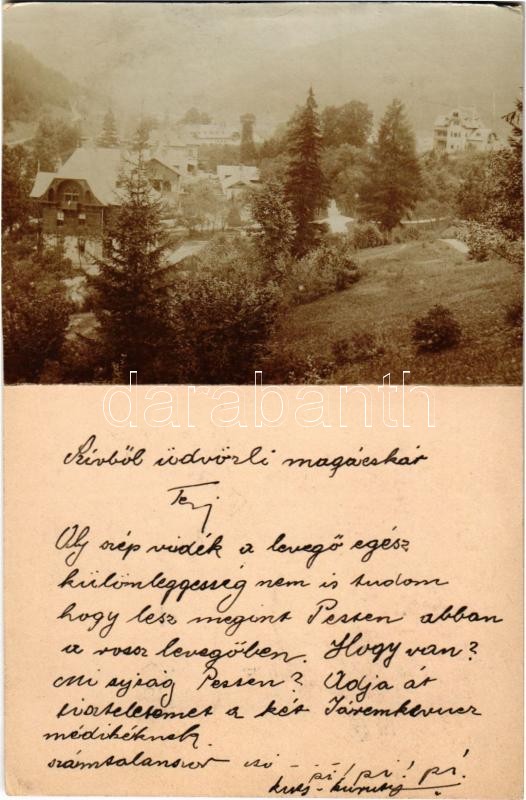 darabanth
Szívből üdvözli magácskát
Oly szép vidék a levegő egész
különleggesség nem is tudom
hogy lesz megint Pesten abban
a rossz levegőben. Hogy van?
Mi ujság Pesten? Adja át
tiszteletemet a két
számtalanszor pi! pi! pi!